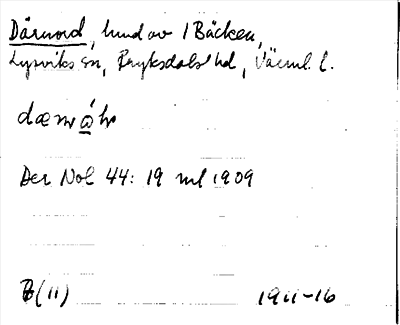 Därnord, hund av 1 Bäcken,
Lysviks sn, Fryksdals hd, Värml. l.
Der Nol 44: 19 ml 1909
B(11)
1911-16